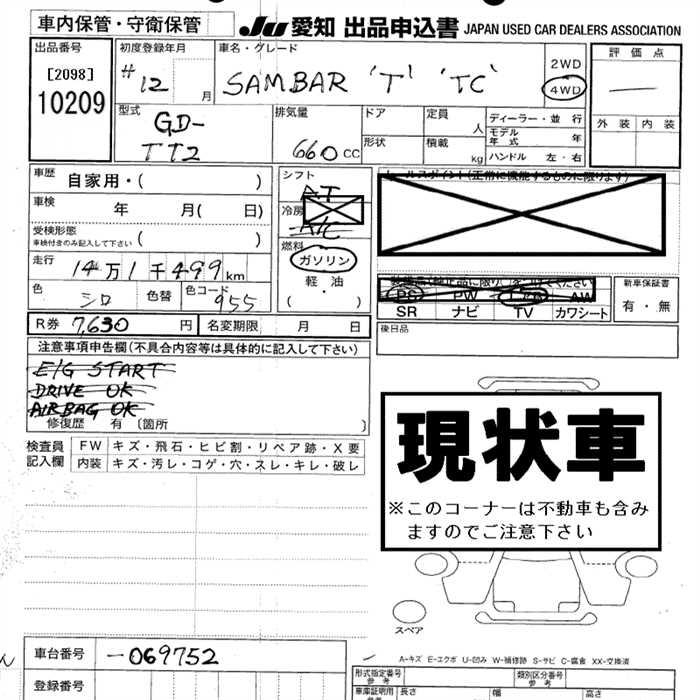 車内保管・守衛保管 JU 愛知 出品申込書 JAPAN USED CAR DEALERS ASSOCIATION
出品番号 初度登録年月 車名・グレード 2WD 評価点
[2098] 12 月 SAMBAR 'T' 'TC' 4WD
10209 型式 排気量 ドア 定員 人 ディーラー・並行 外装 内装
GD- モデル年式 年
TT2 660 CC 形状 積載 kg ハンドル 左・右
車歴 自家用・( ) シフト セールスポイント(正常に機能するものに限ります)
AT
車検 年 月( 日) 冷房
A/C
受検形態 ( )
車検付きのみ記入して下さい
燃料
走行 14万1千499km ガソリン
軽油
(・)
色 シロ 色替 色コード 955
新車保証書
PS PW AW 有・無
SR ナビ TV カワシート
R券 7,630 円 名変期限 月 日 後日品
注意事項申告欄(不具合内容等は具体的に記入して下さい)
E/G START
DRIVE OK
AIRBAG OK
修復歴 有〔箇所 〕
検査員記入欄 FW キズ・飛石・ヒビ割・リペア跡・X要
内装 キズ・汚レ・コゲ・穴・スレ・キレ・破レ
現状車
※このコーナーは不動車も含み
ますのでご注意下さい
スペア
A-キズ E-エクボ U-凹み W-補修跡 S-サビ C-腐食 XX-交換済
車台番号 -069752
登録番号
形式指定番号 参考 類別区分番号 参考
車庫証明用 長さ 幅 高さ